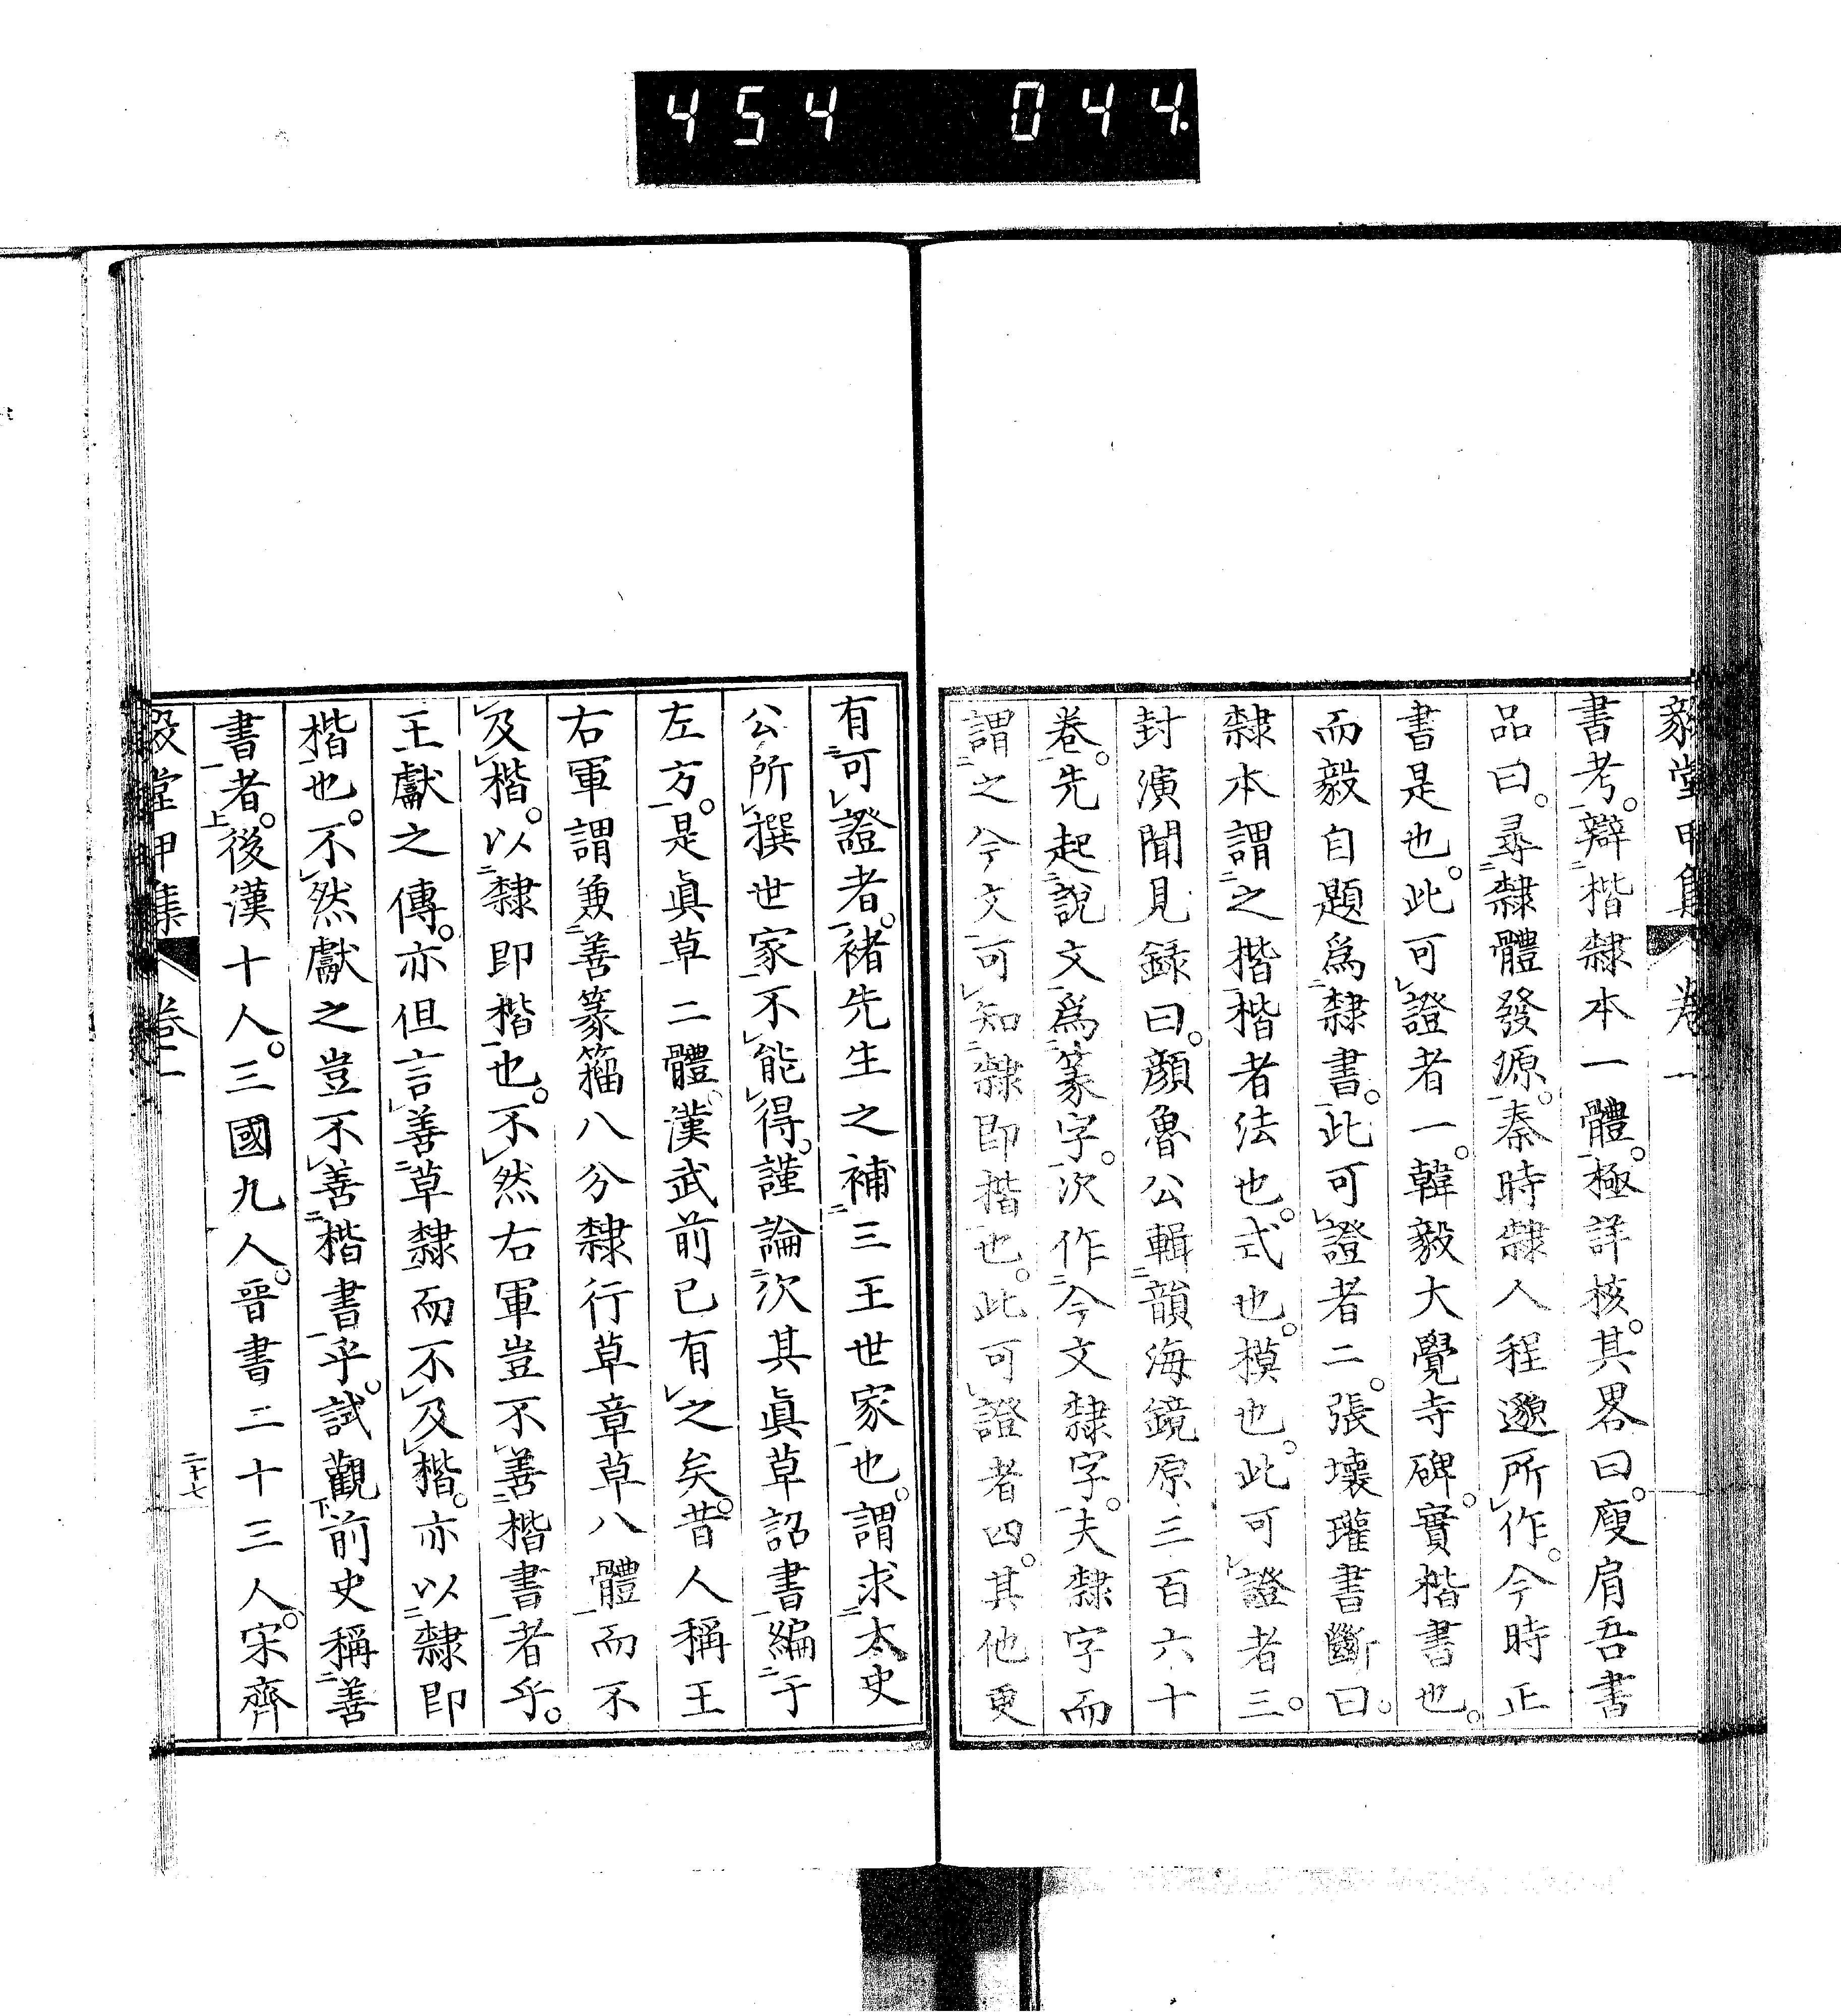 454 044.
毅堂甲集 卷一
書考。辯楷隸本一體。極詳核。其畧曰。廋肩吾書
品曰。尋隸體發源。秦時隸人程邈所作。今時正
書是也。此可證者一。韓毅大覺寺碑。實楷書也。
而毅自題爲隸書。此可證者二。張壞瓘書斷曰。
隸本謂之楷楷者法也。式也。模也。此可證者三。
封演聞見録曰。顔魯公輯韻海鏡原三百六十
卷。先起說文爲篆字。次作今文隸字。夫隸字而
謂之今文可知隸即楷也。此可證者四。其他更
有可證者。褚先生之補三王世家也。謂求太史
公所撰世家不能得。謹論次其眞草詔書編于
左方。是眞草二體。漢武前已有之矣。昔人稱王
右軍謂兼善篆籀八分隸行草章草八體而不
及楷。以隸即楷也。不然右軍豈不善楷書者乎。
王獻之傳。亦但言善草隸而不及楷。亦以隸即
楷也。不然獻之豈不善楷書乎。試觀前史稱善
書者。後漢十人。三國九人。晉書二十三人。宋齊
毅堂甲集 卷一
二十七